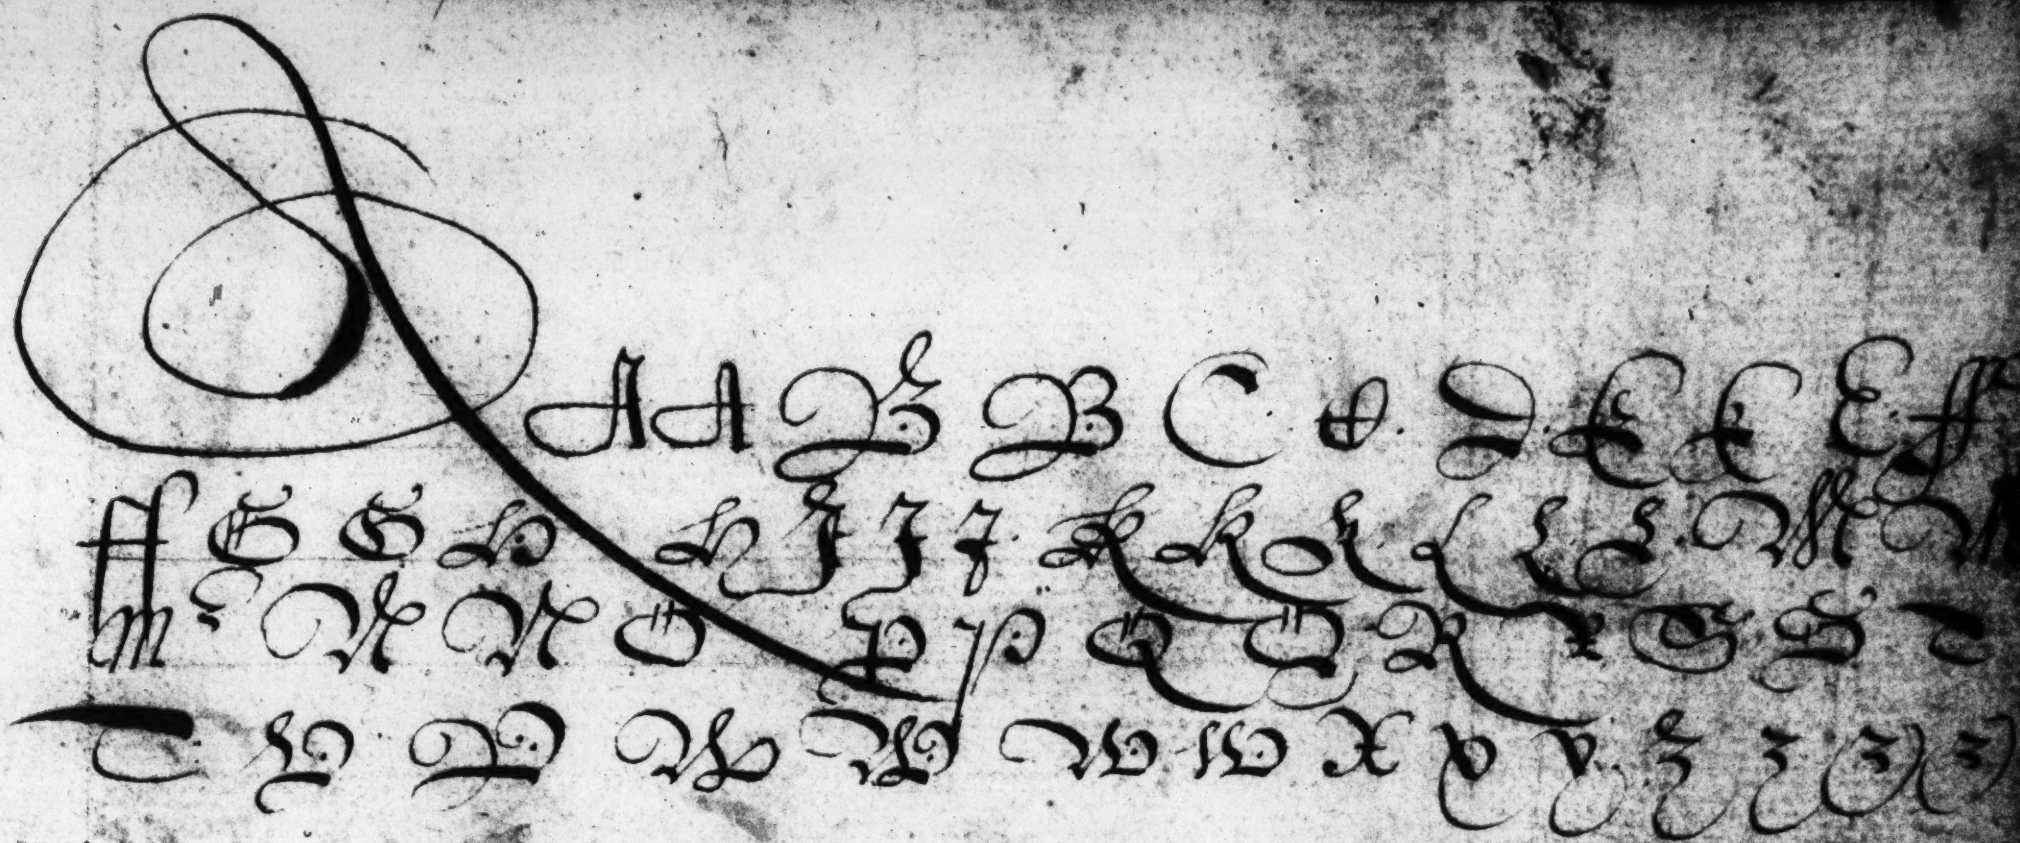 A A A B B C D. D. E E E. F
F G G H H J J J. K K K. L L L. M M
M N N O P P Q Q R R S S T
T V V W W W W X Y Y. Z Z Z Z